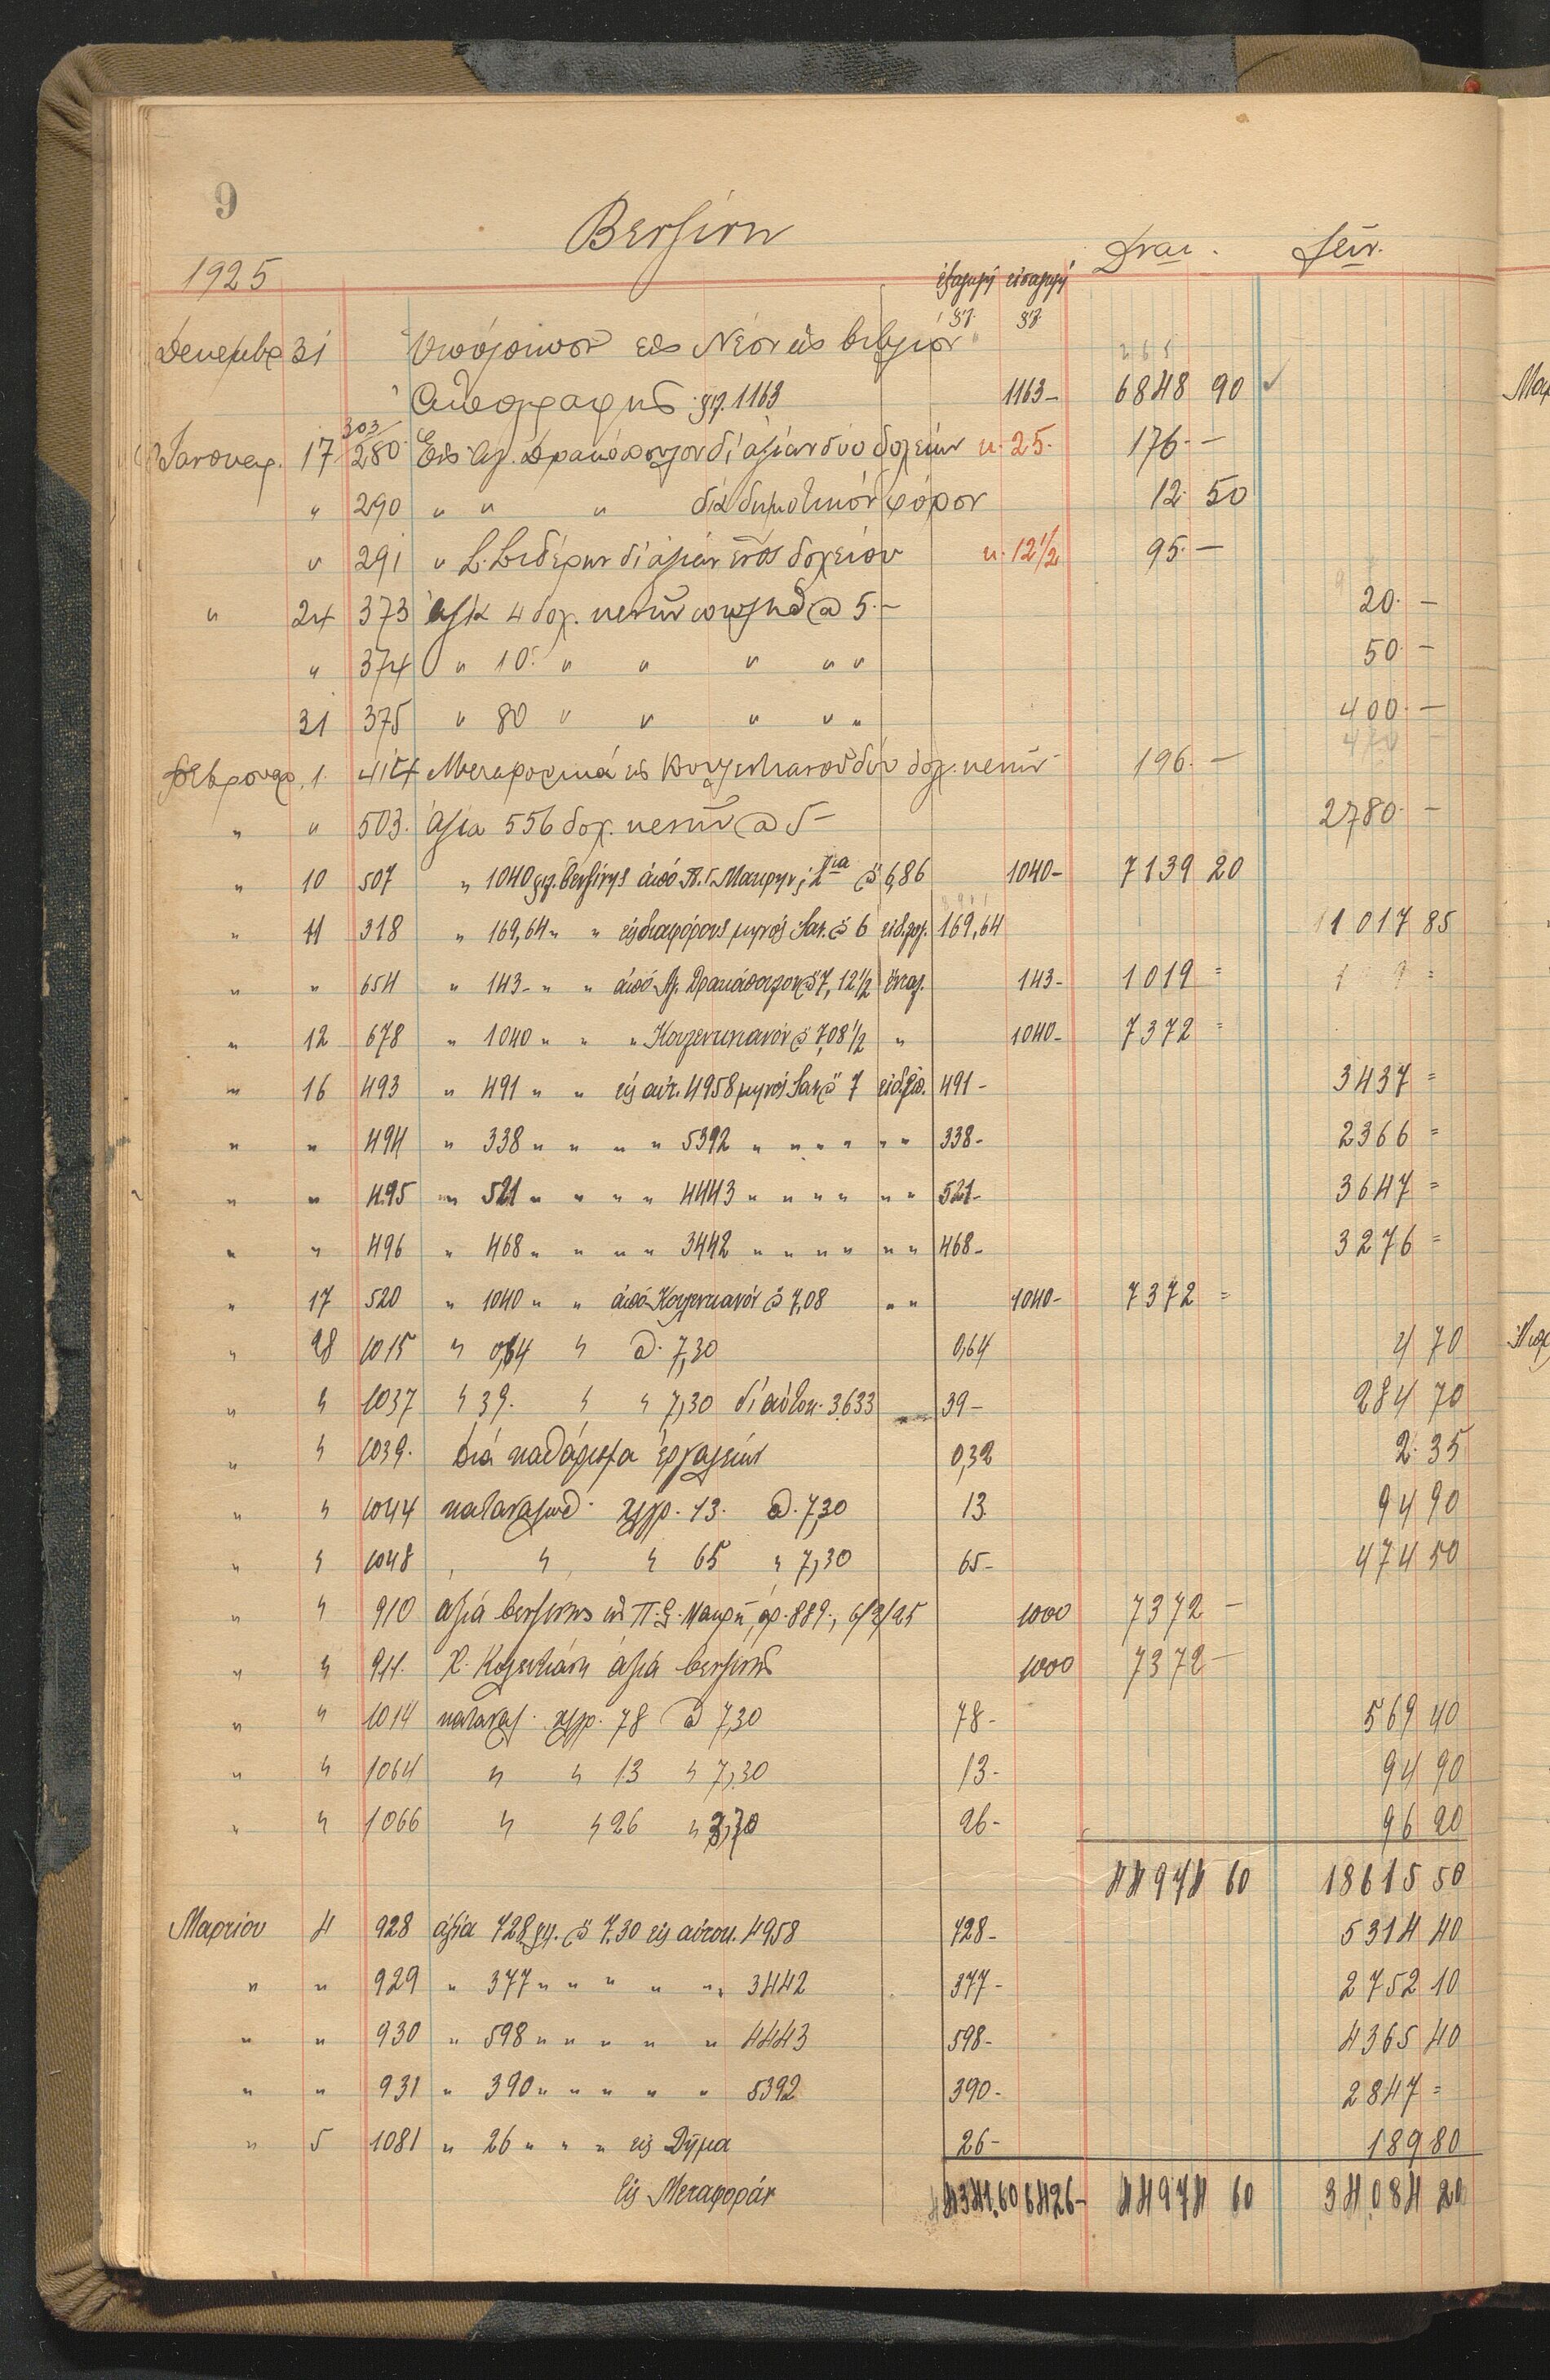 9
Βενζίνη
Δραχ. Λεπτ.
1925
ἐξαγωγή εἰσαγωγή
χγ. χγ.
Δεκεμβρ 31 Ὑπόλοιπον ἐκ Νέον εἰς βιβλίον
Ἀπογραφῆς χιλ. 1163 1163- 6848 90
303
Ἰανουαρ. 17 280 Εἰς Ἀγ. Δρακόπουλον δι' ἀξίαν δύο δοχείων κ. 25. 176.-
" 290 " " " διὰ δημοτικόν φόρον 12. 50
" 291 " Σ. Σιδέρην δι' ἀξίαν ἑνός δοχείου κ. 12 1/2 95.-
" 24 373 ἀξία 4 δοχ. κενῶν πωληθ @ 5.- 20.-
" 374 " 10. " " " " " 50.-
31 375 " 80 " " " " " 400.-
Φεβρουαρ. 1. 414 Μεταφορικά εἰς δύο δοχ. κενῶν 196.-
" " 503. ἀξία 556 δοχ. κενῶν @ 5- 2780.-
" 10 507 " 1040 χιλ. βενζίνης ἀπό Π. Γ. Μακρήν @ 6,86 1040- 7139 20
" 11 318 " 169,64 " " εἰς διαφόρους μηνός Ἰαν. @ 6 169,64 1017 85
" " 654 " 143- " " ἀπό Ἀγ. Δρακόπουλον @ 7,12 1/2 143- 1019 =
" 12 678 " 1040 " " " Κουλεντιανόν @ 7,08 1/2 " 1040- 7372 =
" 16 493 " 491 " " εἰς αὐτ. 4958 μηνός Ἰαν @ 7 491- 3437 =
" " 494 " 338 " " " " 5392 " " " " " " 338- 2366 =
" " 495 " 521 " " " " 4443 " " " " " " 521- 3647 =
" " 496 " 468 " " " " 3442 " " " " " " 468- 3276 =
" 17 520 " 1040 " " ἀπό Κουλεντιανόν @ 7,08 " " 1040- 7372 =
" 28 1015 " 0,64 " @. 7,30 0,64 4 70
" " 1037 " 39. " " 7,30 δι' αὐτοκ. 3633 39- 284 70
" " 1039. διά καθάρισμα ἐργαλείων 0,32 2. 35
" " 1044 καταναλωθ. χλγρ. 13. @. 7,30 13. 94 90
" " 1048 " " " 65 " 7,30 65- 474 50
" " 910 ἀξία βενζίνης εἰς Π. Γ. Μακρῆ, ἀρ. 889., 6/2/25 1000 7372 -
" " 911. Χ. Κουλεντιάνη ἀξία βενζίνης 1000 7372 -
" " 1014 καταναλ. χλγρ. 78 @ 7,30 78- 569 40
" " 1064 " " 13 " 7,30 13- 94 90
" " 1066 " " 26 " 3,70 26- 96 20
44974 60 18615 50
Μαρτίου 4 928 ἀξία 728 χιλ. @ 7.30 εἰς αὐτοκ. 4958 728- 5314 40
" " 929 " 377 " " " " " 3442 377- 2752 10
" " 930 " 598 " " " " " 4443 598- 4365 40
" " 931 " 390 " " " " " 5392 390- 2847 =
" 5 1081 " 26 " " " εἰς Δῆμα 26- 189 80
Εἰς Μεταφοράν 4341.60 6426- 44974 60 34.084 20